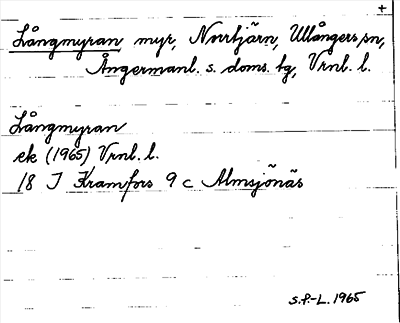 +
Långmyran myr, Norrtjärn, Ullångers sn,
Ångermanl. s. doms. tg, Vrnl. l.
Långmyran
ek (1965) Vrnl. l.
18 I Kramfors 9 c Almsjönäs
S.F.-L. 1965